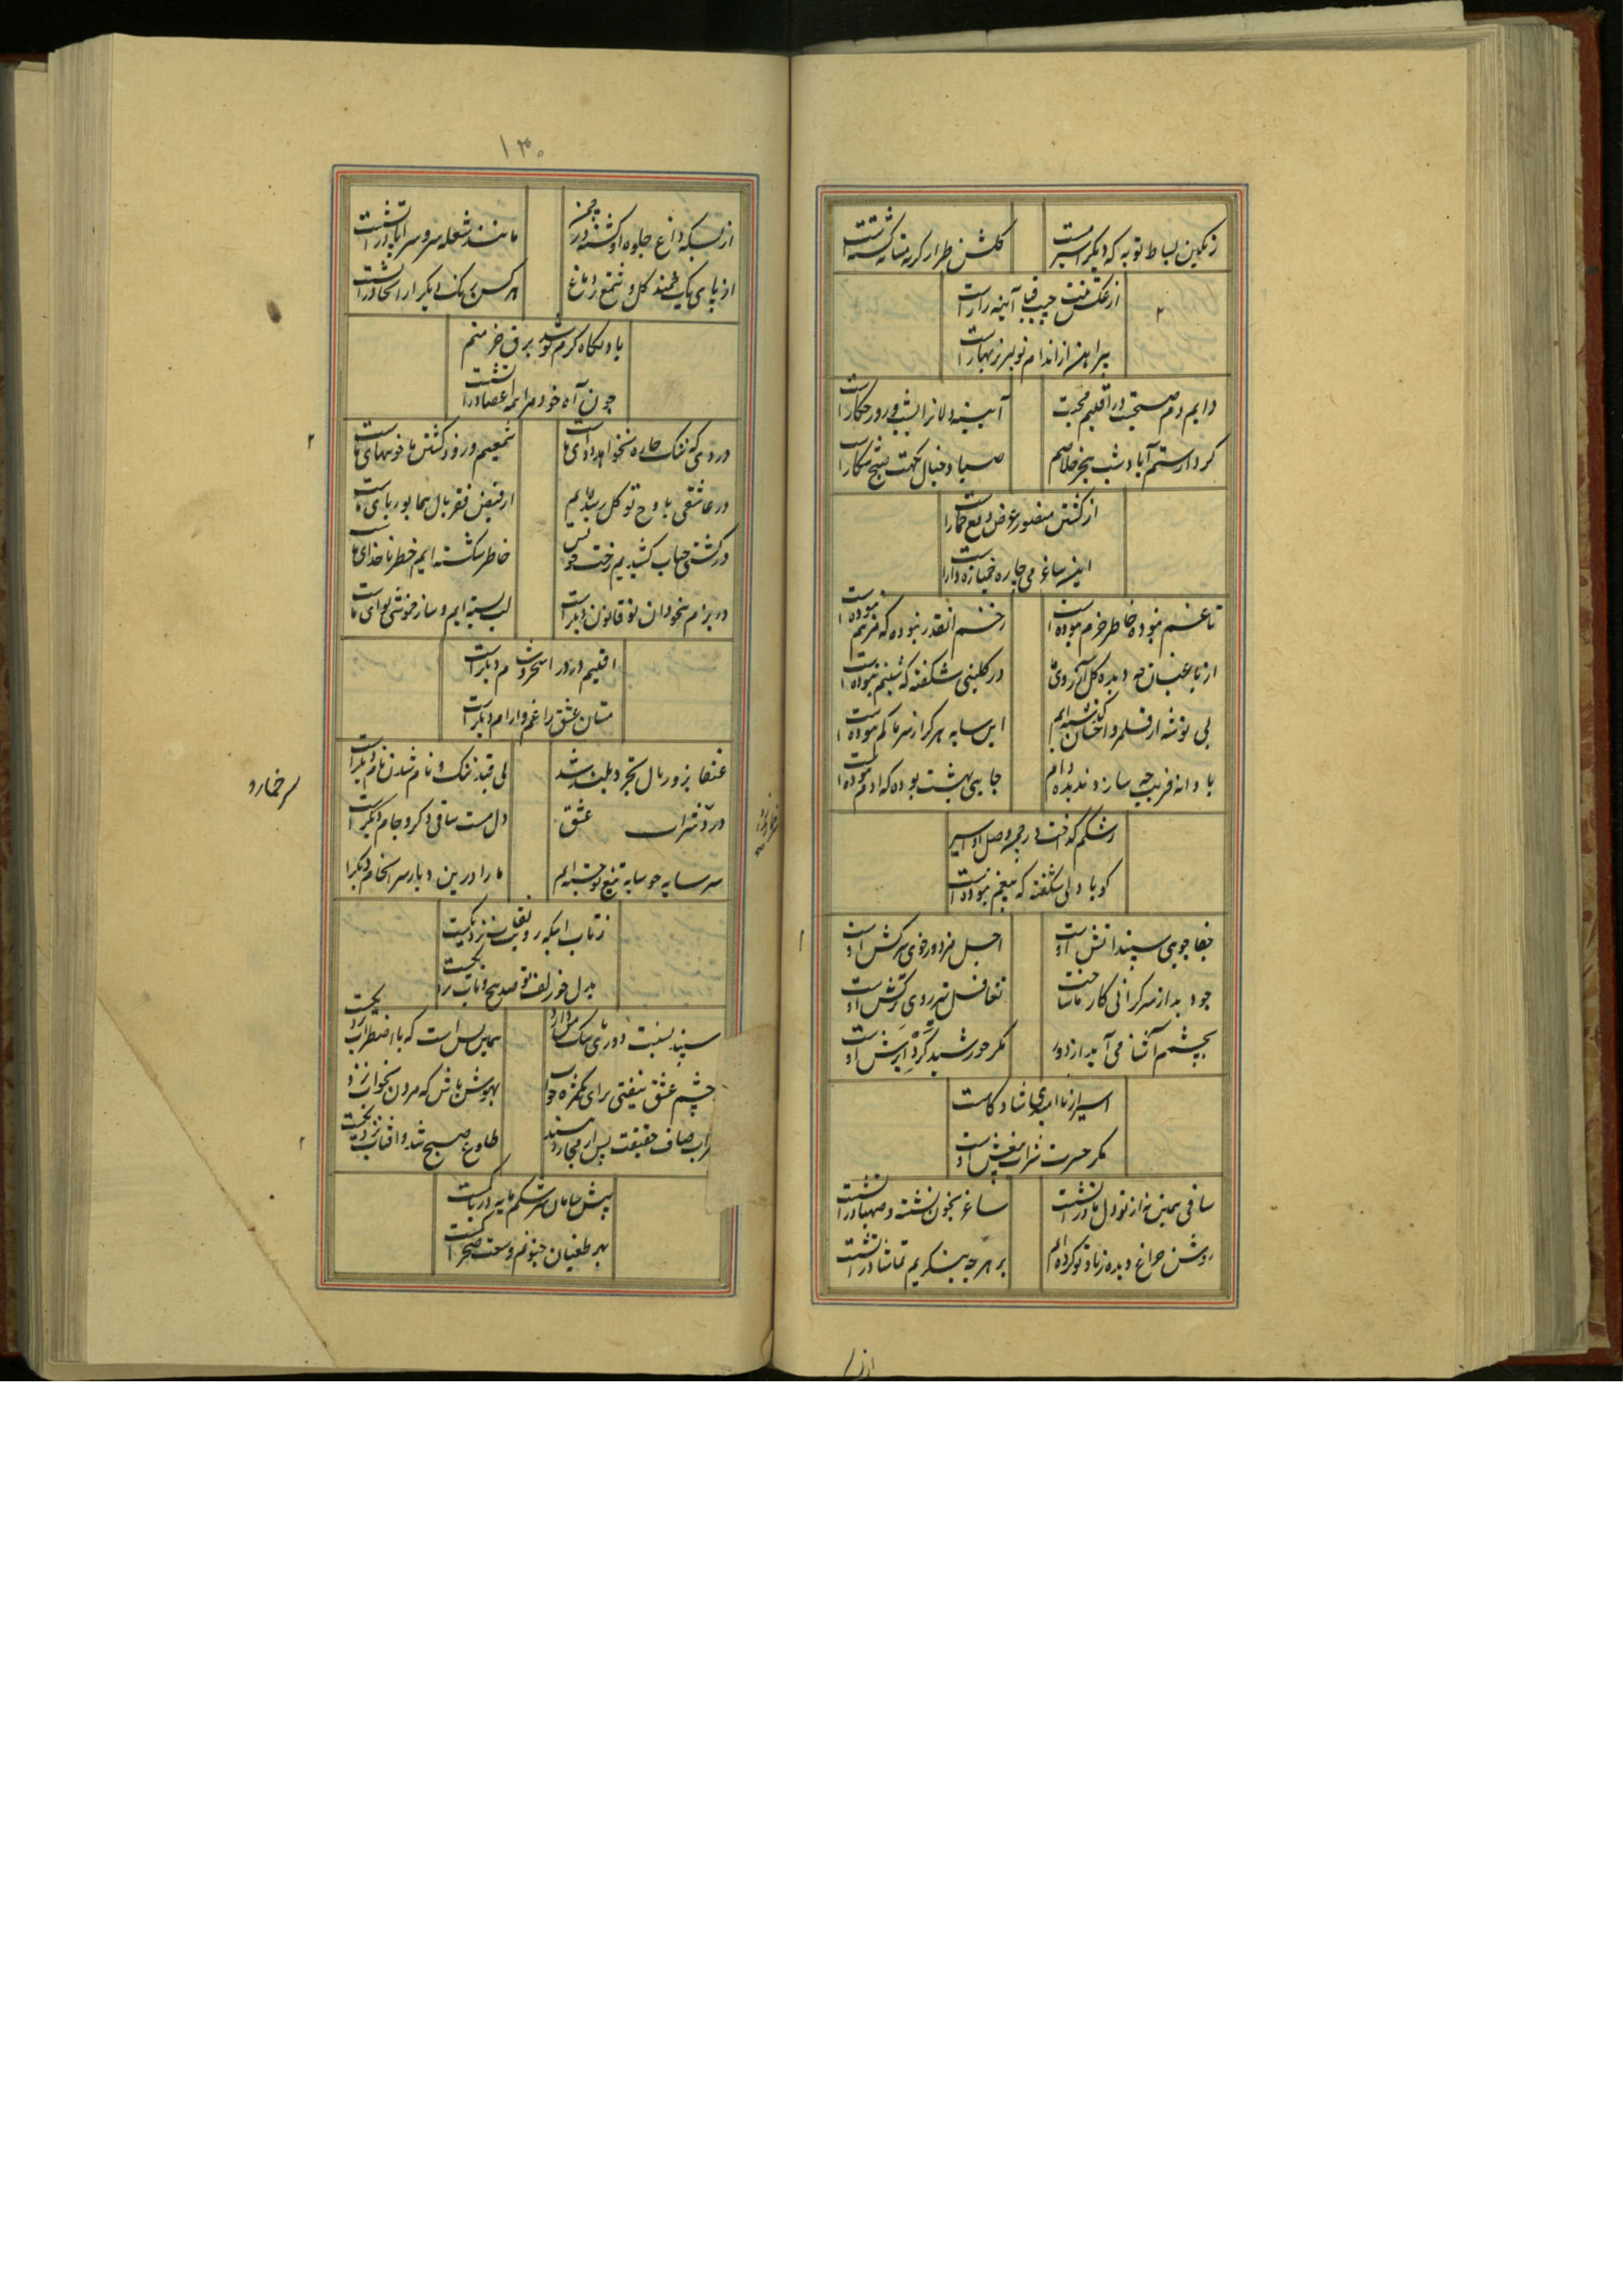 رنگین بساط توبه که دیگر اسیر است
گلشن طراز گریه مستانه گشته است
از عکس منت جیب قبا آینه زار است
پیراهن از اندام تو لبریز بهار است
دایم دم صبحست در اقلیم محبت
آیینه دلانرا بشب و روز چکار است
گرد ستم آباد شب هجر خلاصم
صیاد خیال نکهت صبح شکار است
از کشتن منصور عوض دفع خمار است
ساغر می چاره خمیازه دار است
تا غم نبوده خاطر خرم نبوده است
زخم آنقدر نبوده که مرهم نبوده است
از باغبان چه دیده گل آبروی ما
در گلبنی شکفته که شبنم نبوده است
بی توشه از قلمرو احسان گذشته ایم
این سایه هرگز از سر ما کم نبوده است
با دانه فریب چه سازد ندیده دام
جایی بهشت بوده که آدم نبوده است
رشکم گداخت در چه وصل او اسیر
گویا دلی شکفته که بیغم نبوده است
جفا جویی سپند آتش اوست
اجل مزدور خوی سرکش اوست
جود بد از سرگرانی کار ما ساخت
تغافل تیر روی ترکش اوست
بچشم آشنا می آید از دور
مگر خورشید گرد ابرش اوست
اسیر از ناامیدی شادکامست
مگر حسرت شراب بیغش اوست
ساقی همین نه از تو دل ما در آتشست
ساغر بخون نشسته و صهبا در آتشست
روشن چراغ دیده ز یاد تو کرده ایم
بر هر چه بنگریم تماشا در آتشست
از
۱۳۰
از بسکه داغ جلوه او گشته در چمن
مانند شعله سرو سراپا در آتشست
از پای یک همند گل و شمع را دماغ
هر کس به رنگ دیگر از آنجا در آتشست
با دستگاه گرم تو شد برق خرمنم
چون آه خود مرا همه اعضا در آتشست
دردی که ننگ چاره نخواهد دوای ماست
شمعیم و روز کشتن ما خونبهای ماست
در عاشقی به اوج توکل رسیده ایم
از فیض فقر بال هما بوریای ماست
در کشتی حباب کشیدیم رخت خویش
خاطر شکسته ایم خطر ناخدای ماست
در بزم بیخودان تو قانون دیگر است
لب بسته ایم و ساز خموشی نوای ماست
اقلیم درد را سحر و شام دیگر است
مستان عشق را غم و آرام دیگر است
عنقا بزور بال تجرد بلند شد
بی قید ننگ و نام شدن نام دیگر است
درد شراب عشق
دل مست ساقی دگر و جام دیگر است
سر خمار و
سر سایه چو سایه تیغ تو جسته ایم
ما را درین دیار سرانجام دیگر است
ز تاب اینکه رویت به نقاب نزدیکست
بدل خود زلف تو صد پیچ و تاب نزدیکست
سپند نسبت دوری ما دارد
همین بس است که با اضطراب نزدیکست
بچشم عشق نیفتی برای یکمژه خواب
بهوش باش که مردن بخواب نزدیکست
شراب صاف حقیقت پس از مجاز رسد
طلوع صبح شد و آفتاب نزدیکست
پیش سامان سرشکم مایه دریا کمست
بهر طغیان جنونم وسعت صحرا کمست